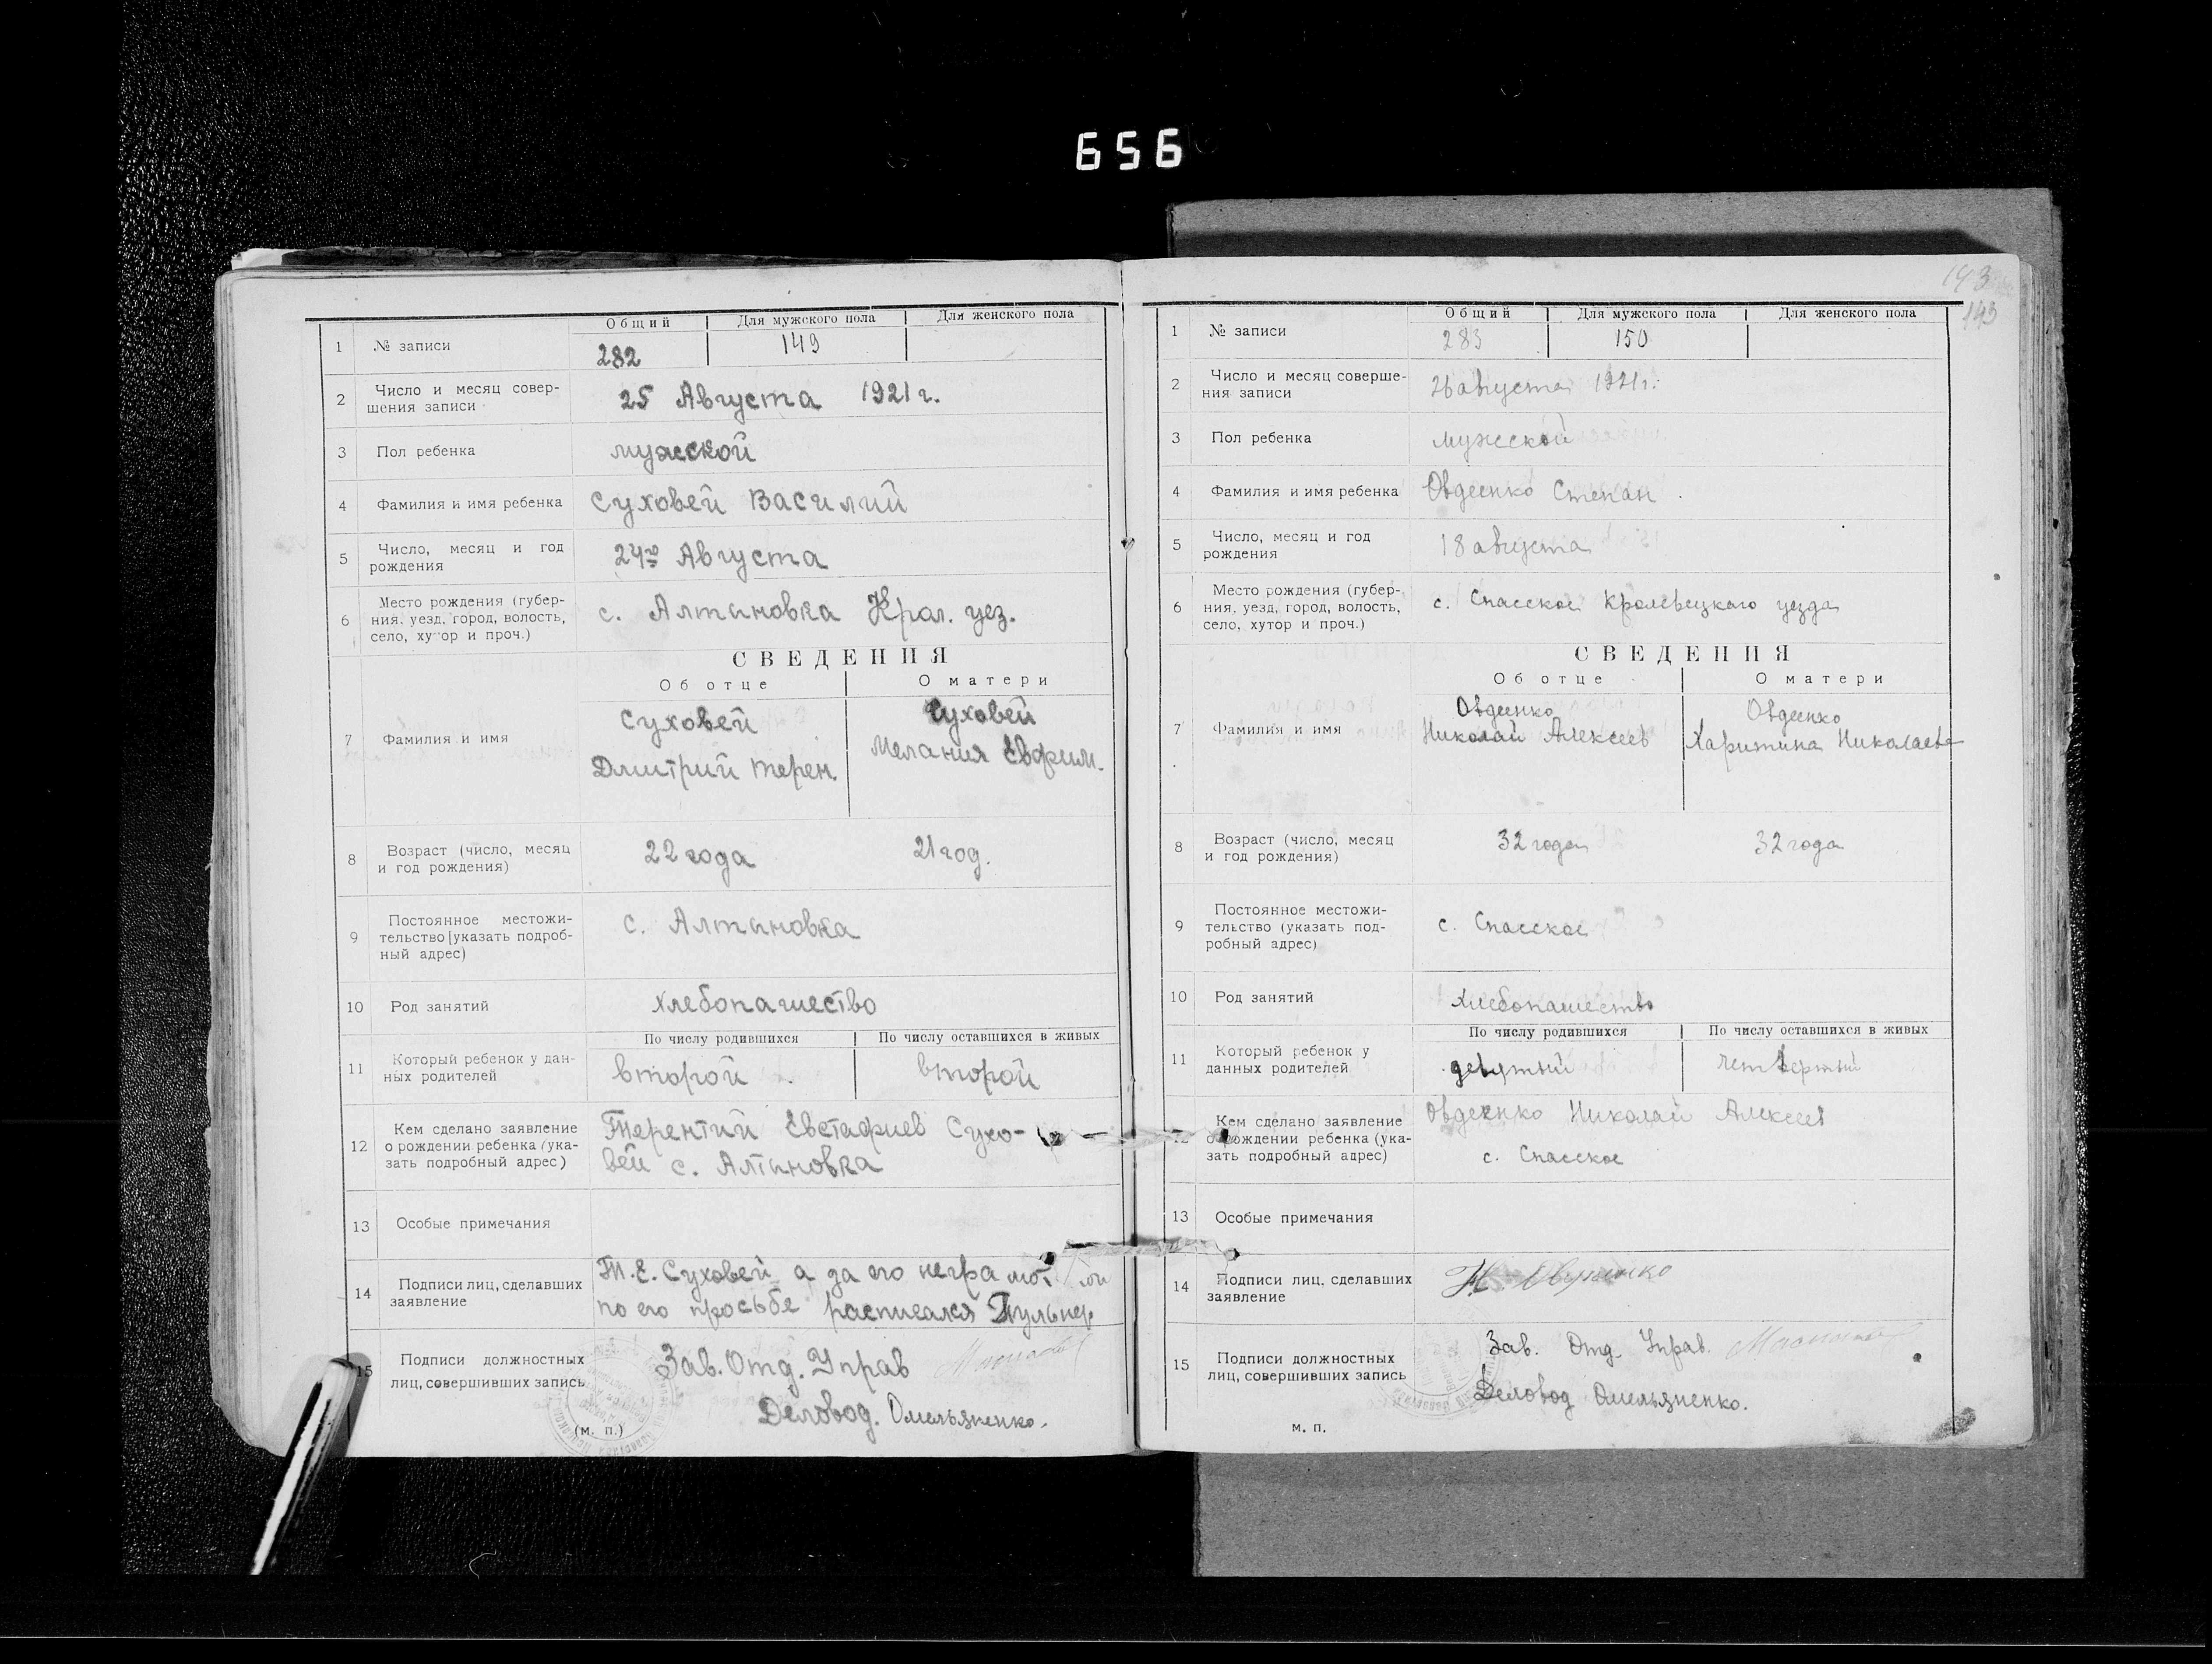 656
Общий Для мужского пола Для женского пола
1 № записи 282 149
2 Число и месяц совер-
шения записи 25 Августа 1921 г.
3 Пол ребенка мужской
4 Фамилия и имя ребенка Суховей Василий
5 Число, месяц и год
рождения 24го Августа
6 Место рождения (губер-
ния, уезд, город, волость,
село, хутор и проч.) с. Алтиновка Крол. уез.
СВЕДЕНИЯ
Об отце О матери
7 Фамилия и имя
Суховей Суховей
Дмитрий Терен. Мелания Евфим.
8 Возраст (число, месяц
и год рождения) 22 года 21 год.
9 Постоянное местожи-
тельство [указать подроб-
ный адрес) с. Алтиновка
10 Род занятий хлебопашество
По числу родившихся По числу оставшихся в живых
11 Который ребенок у дан-
ных родителей второй второй
12 Кем сделано заявление
о рождении ребенка (ука-
зать подробный адрес)
Терентий Евстафиев Сухо-
вей с. Алтиновка
13 Особые примечания
14 Подписи лиц, сделавших
заявление
Т. Е. Суховей а за его неграмот
по его просьбе расписался
15 Подписи должностных
лиц, совершивших запись
Зав. Отд. Управ
Деловод. Омельяненко.
(м. п.)
143
143
Общий Для мужского пола Для женского пола
1 № записи 283 150
2 Число и месяц соверше-
ния записи 26 августа 1921 г.
3 Пол ребенка мужской
4 Фамилия и имя ребенка Овдеенко Степан
5 Число, месяц и год
рождения 18 августа
6 Место рождения (губер-
ния, уезд, город, волость,
село, хутор и проч.) с. Спасское Кролевецкаго уезда
СВЕДЕНИЯ
Об отце О матери
7 Фамилия и имя
Овдеенко Овдеенко
Николай Алексеев Харитина Николаева
8 Возраст (число, месяц
и год рождения) 32 года 32 года
9 Постоянное местожи-
тельство (указать под-
робный адрес) с. Спасское
10 Род занятий Хлебопашество
По числу родившихся По числу оставшихся в живых
11 Который ребенок у
данных родителей девятый четвертый
12 Кем сделано заявление
о рождении ребенка (ука-
зать подробный адрес)
Овдеенко Николай Алексеев
с. Спасское
13 Особые примечания
14 Подписи лиц, сделавших
заявление
15 Подписи должностных
лиц, совершивших запись
Зав. Отд. Управ.
Деловод Омельяненко.
м. п.